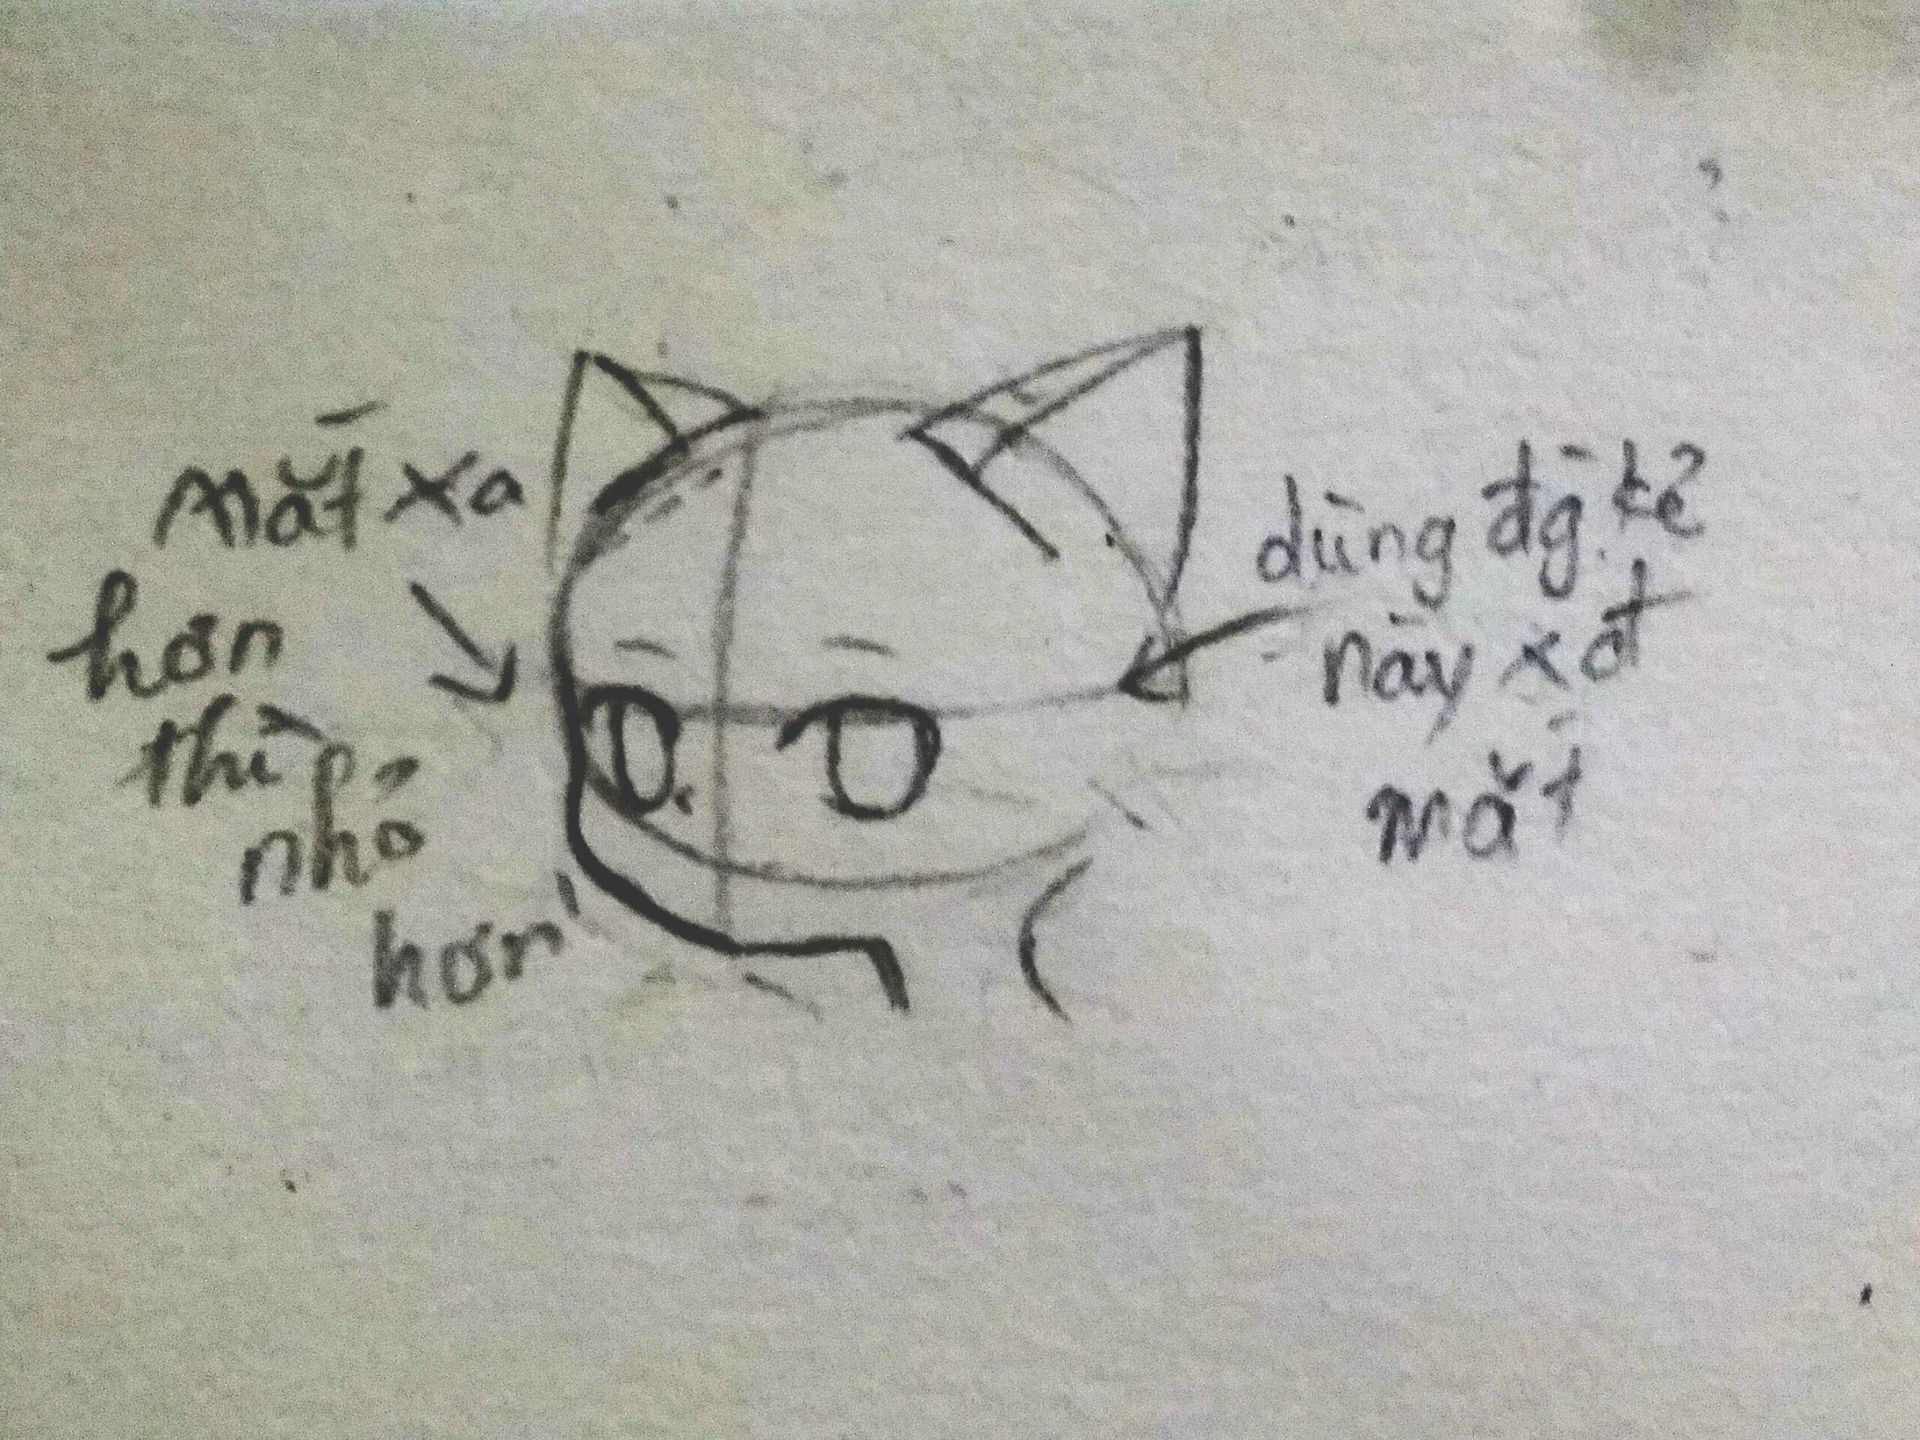 Mắt xa
hơn
thì
nhỏ
hơn
dùng đg kẻ
này
mắt